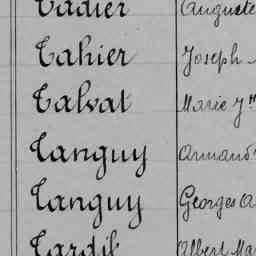 Tadier Auguste
Tahier Joseph
Talvat Marie J
Tanguy Armand
Tanguy Georges A
Tardif Albert Ma